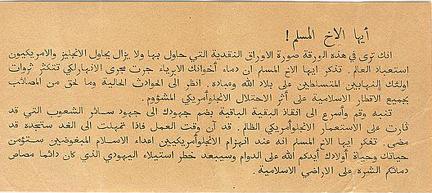 أيها الاخ المسلم!
انك ترى في هذه الورقة صورة الاوراق النقدية التي حاول بها ولا يزال يحاول الانجليز والامريكيون
استعباد العالم. تذكر ايها الاخ المسلم ان دماء أخوانك الابرياء جرت مجرى الانهار لكي تتكثر ثروات
اولئك النهابين المتسلطين على بلاد الله وعباده. انظر الى الحوادث الحالية وما لحق من المصائب
بجميع الاقطار الاسلامية على أثر الاحتلال الانجلوأمريكي المشؤوم.
تنبه وقم وأسرع الى انقاذ البقية الباقية بضم جهودك الى جهود سائر الشعوب التي قد
ثارت على الاستعمار الانجلوأمريكي الظالم. قد آن وقت العمل فاذا تمهلت الى الغد ستجده قد
مضى. تذكر ايها الاخ المسلم انه عند انهزام الأنجلوأمريكيين اعداء الاسلام المبغوضين ستؤمن
حياتك وحياة أولادك أيدكم الله على الدوام وسيبعد خطر استيلاء اليهودي الذي كان دائما مصاص
دمائكم الشره على الاراضي الاسلامية.